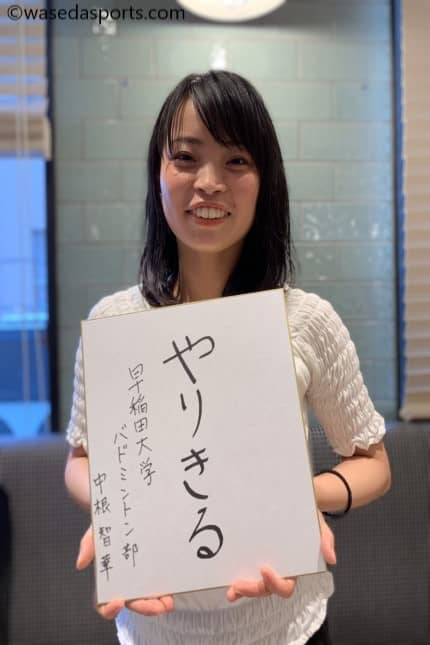 ©wasedasports.com
やりきる
早稲田大学
バドミントン部
中根智華